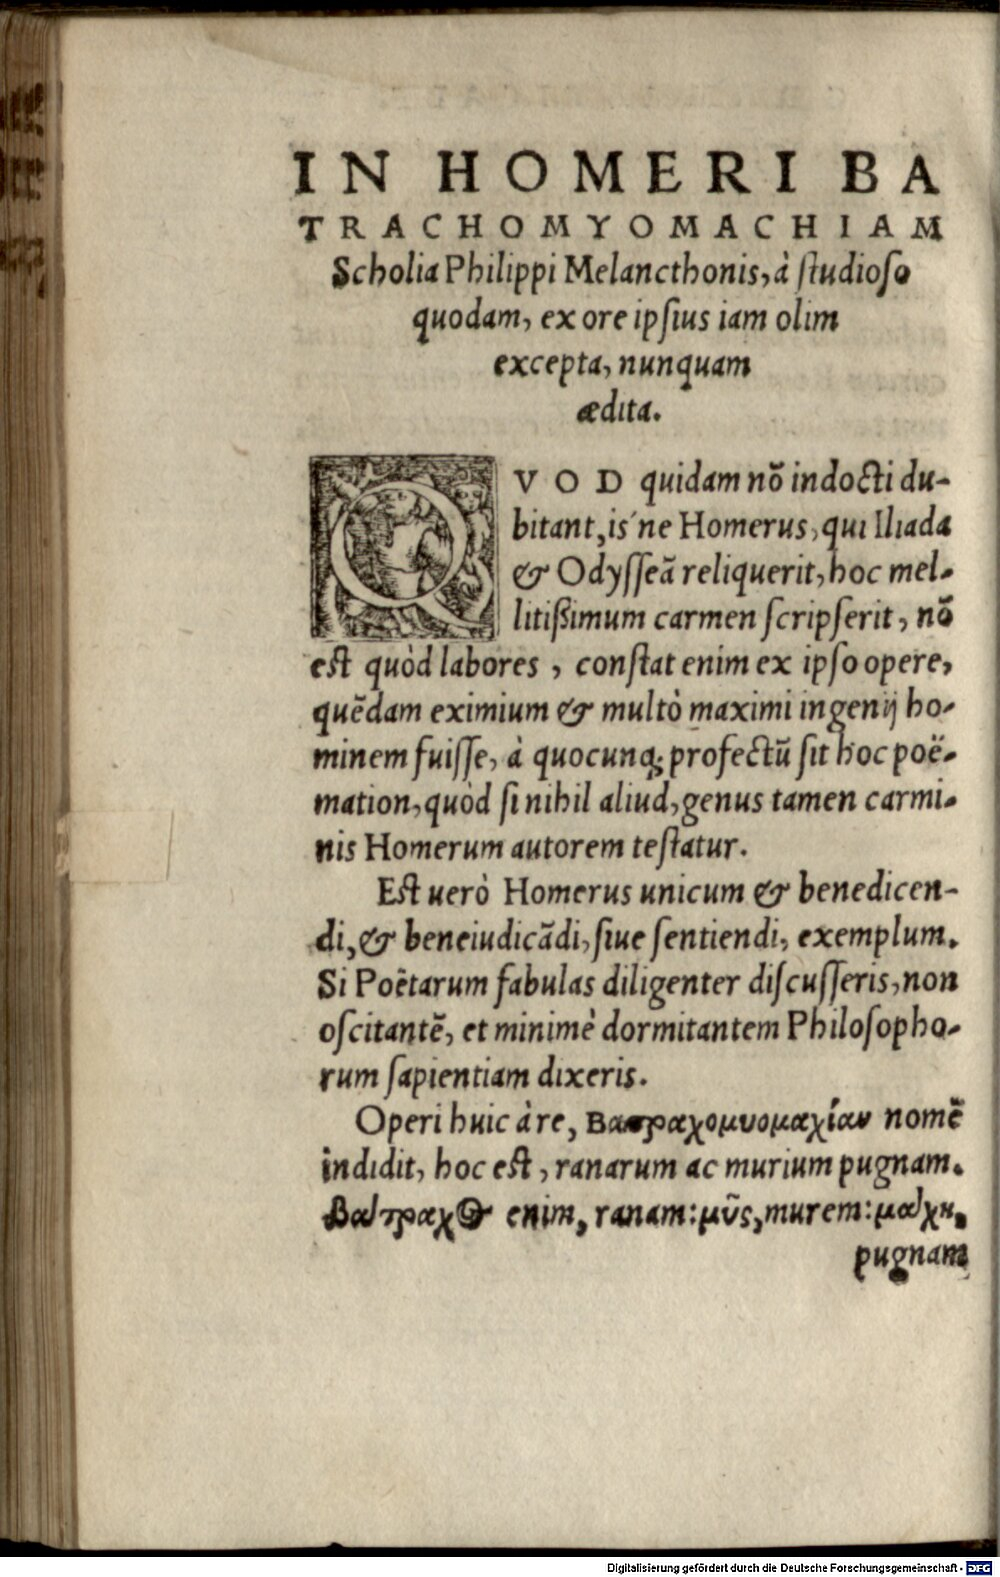 IN HOMERI BA
TRACHOMYOMACHIAM
Scholia Philippi Melancthonis, à ſtudioſo
quodam, ex ore ipſius iam olim
excepta, nunquam
ædita.
QVOD quidam nõ indocti du-
bitant, is'ne Homerus, qui Iliada
& Odyſſeã reliquerit, hoc mel-
litißimum carmen ſcripſerit, nõ
eſt quòd labores, conſtat enim ex ipſo opere,
quẽdam eximium & multò maximi ingenij ho-
minem fuiſſe, à quocunq; profectũ ſit hoc poë-
mation, quòd ſi nihil aliud, genus tamen carmi-
nis Homerum autorem teſtatur.
Eſt uerò Homerus unicum & benedicen-
di, & beneiudicãdi, ſiue ſentiendi, exemplum.
Si Poëtarum fabulas diligenter diſcuſſeris, non
oſcitantẽ, et minimè dormitantem Philoſopho-
rum ſapientiam dixeris.
Operi huic à re, Βατραχομυομαχίαν nomẽ
indidit, hoc eſt, ranarum ac murium pugnam.
Βάτραχος enim, ranam: μῦς, murem: μάχη,
pugnam
Digitalisierung gefördert durch die Deutsche Forschungsgemeinschaft - DFG